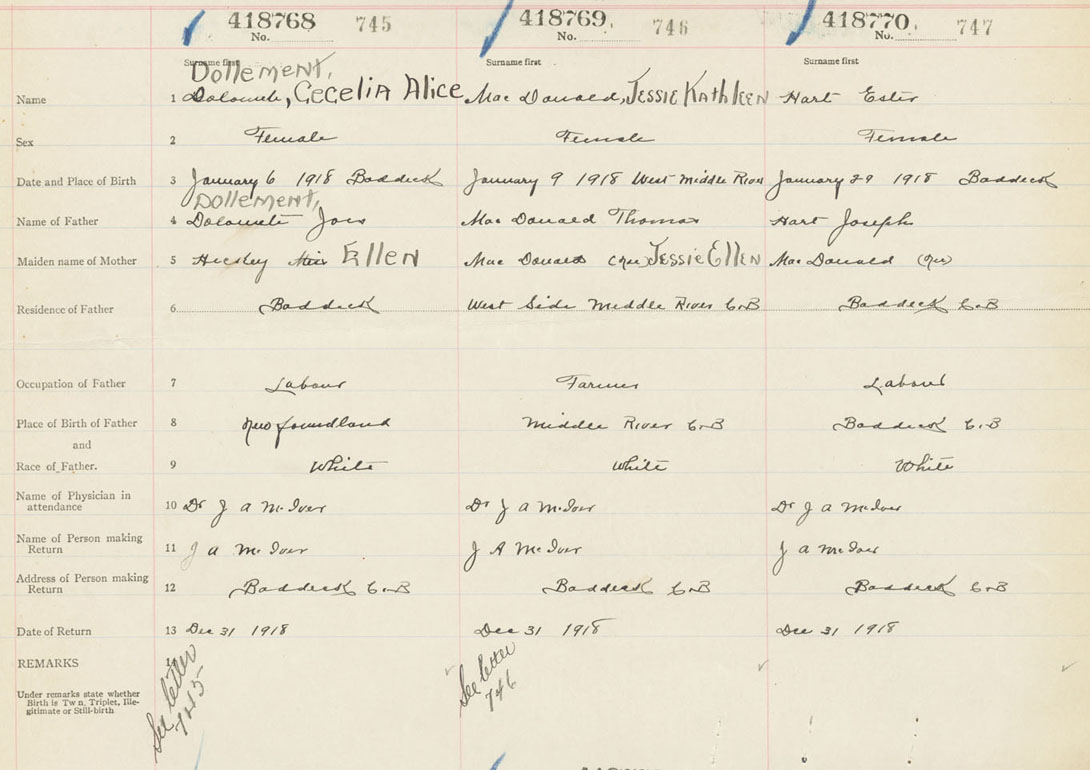 418768 745 418769. 746 418770. 747
No. No. No.
Surname first Surname first Surname first
Dollement,
Name 1 Dolomete, Cecelia Alice Mac Donald, Jessie Kathleen Hart Ester
Sex 2 Female Female Female
Date and Place of Birth 3 January 6 1918 Baddeck January 9 1918 West Middle River January 29 1918 Baddeck
Dollement,
Name of Father 4 Dolomete Mac Donald Thomas Hart Joseph
Maiden name of Mother 5 Ellen Mac Donald (nee) Jessie Ellen Mac Donald (nee)
Residence of Father 6 Baddeck West Side Middle River C.B Baddeck C.B
Occupation of Father 7 Labour Farmer Labour
Place of Birth of Father 8 Newfoundland Middle River C.B Baddeck C.B
and
Race of Father. 9 White White White
Name of Physician in
attendance 10 Dr J A McIver Dr J A McIver Dr J A McIver
Name of Person making
Return 11 J A McIver J A McIver J A McIver
Address of Person making
Return 12 Baddeck C.B Baddeck C.B Baddeck C.B
Date of Return 13 Dec 31 1918 Dec 31 1918 Dec 31 1918
REMARKS 14
Under remarks state whether
Birth is Tw n, Triplet, Ille-
gitimate or Still-birth
See letter
745
See letter
746